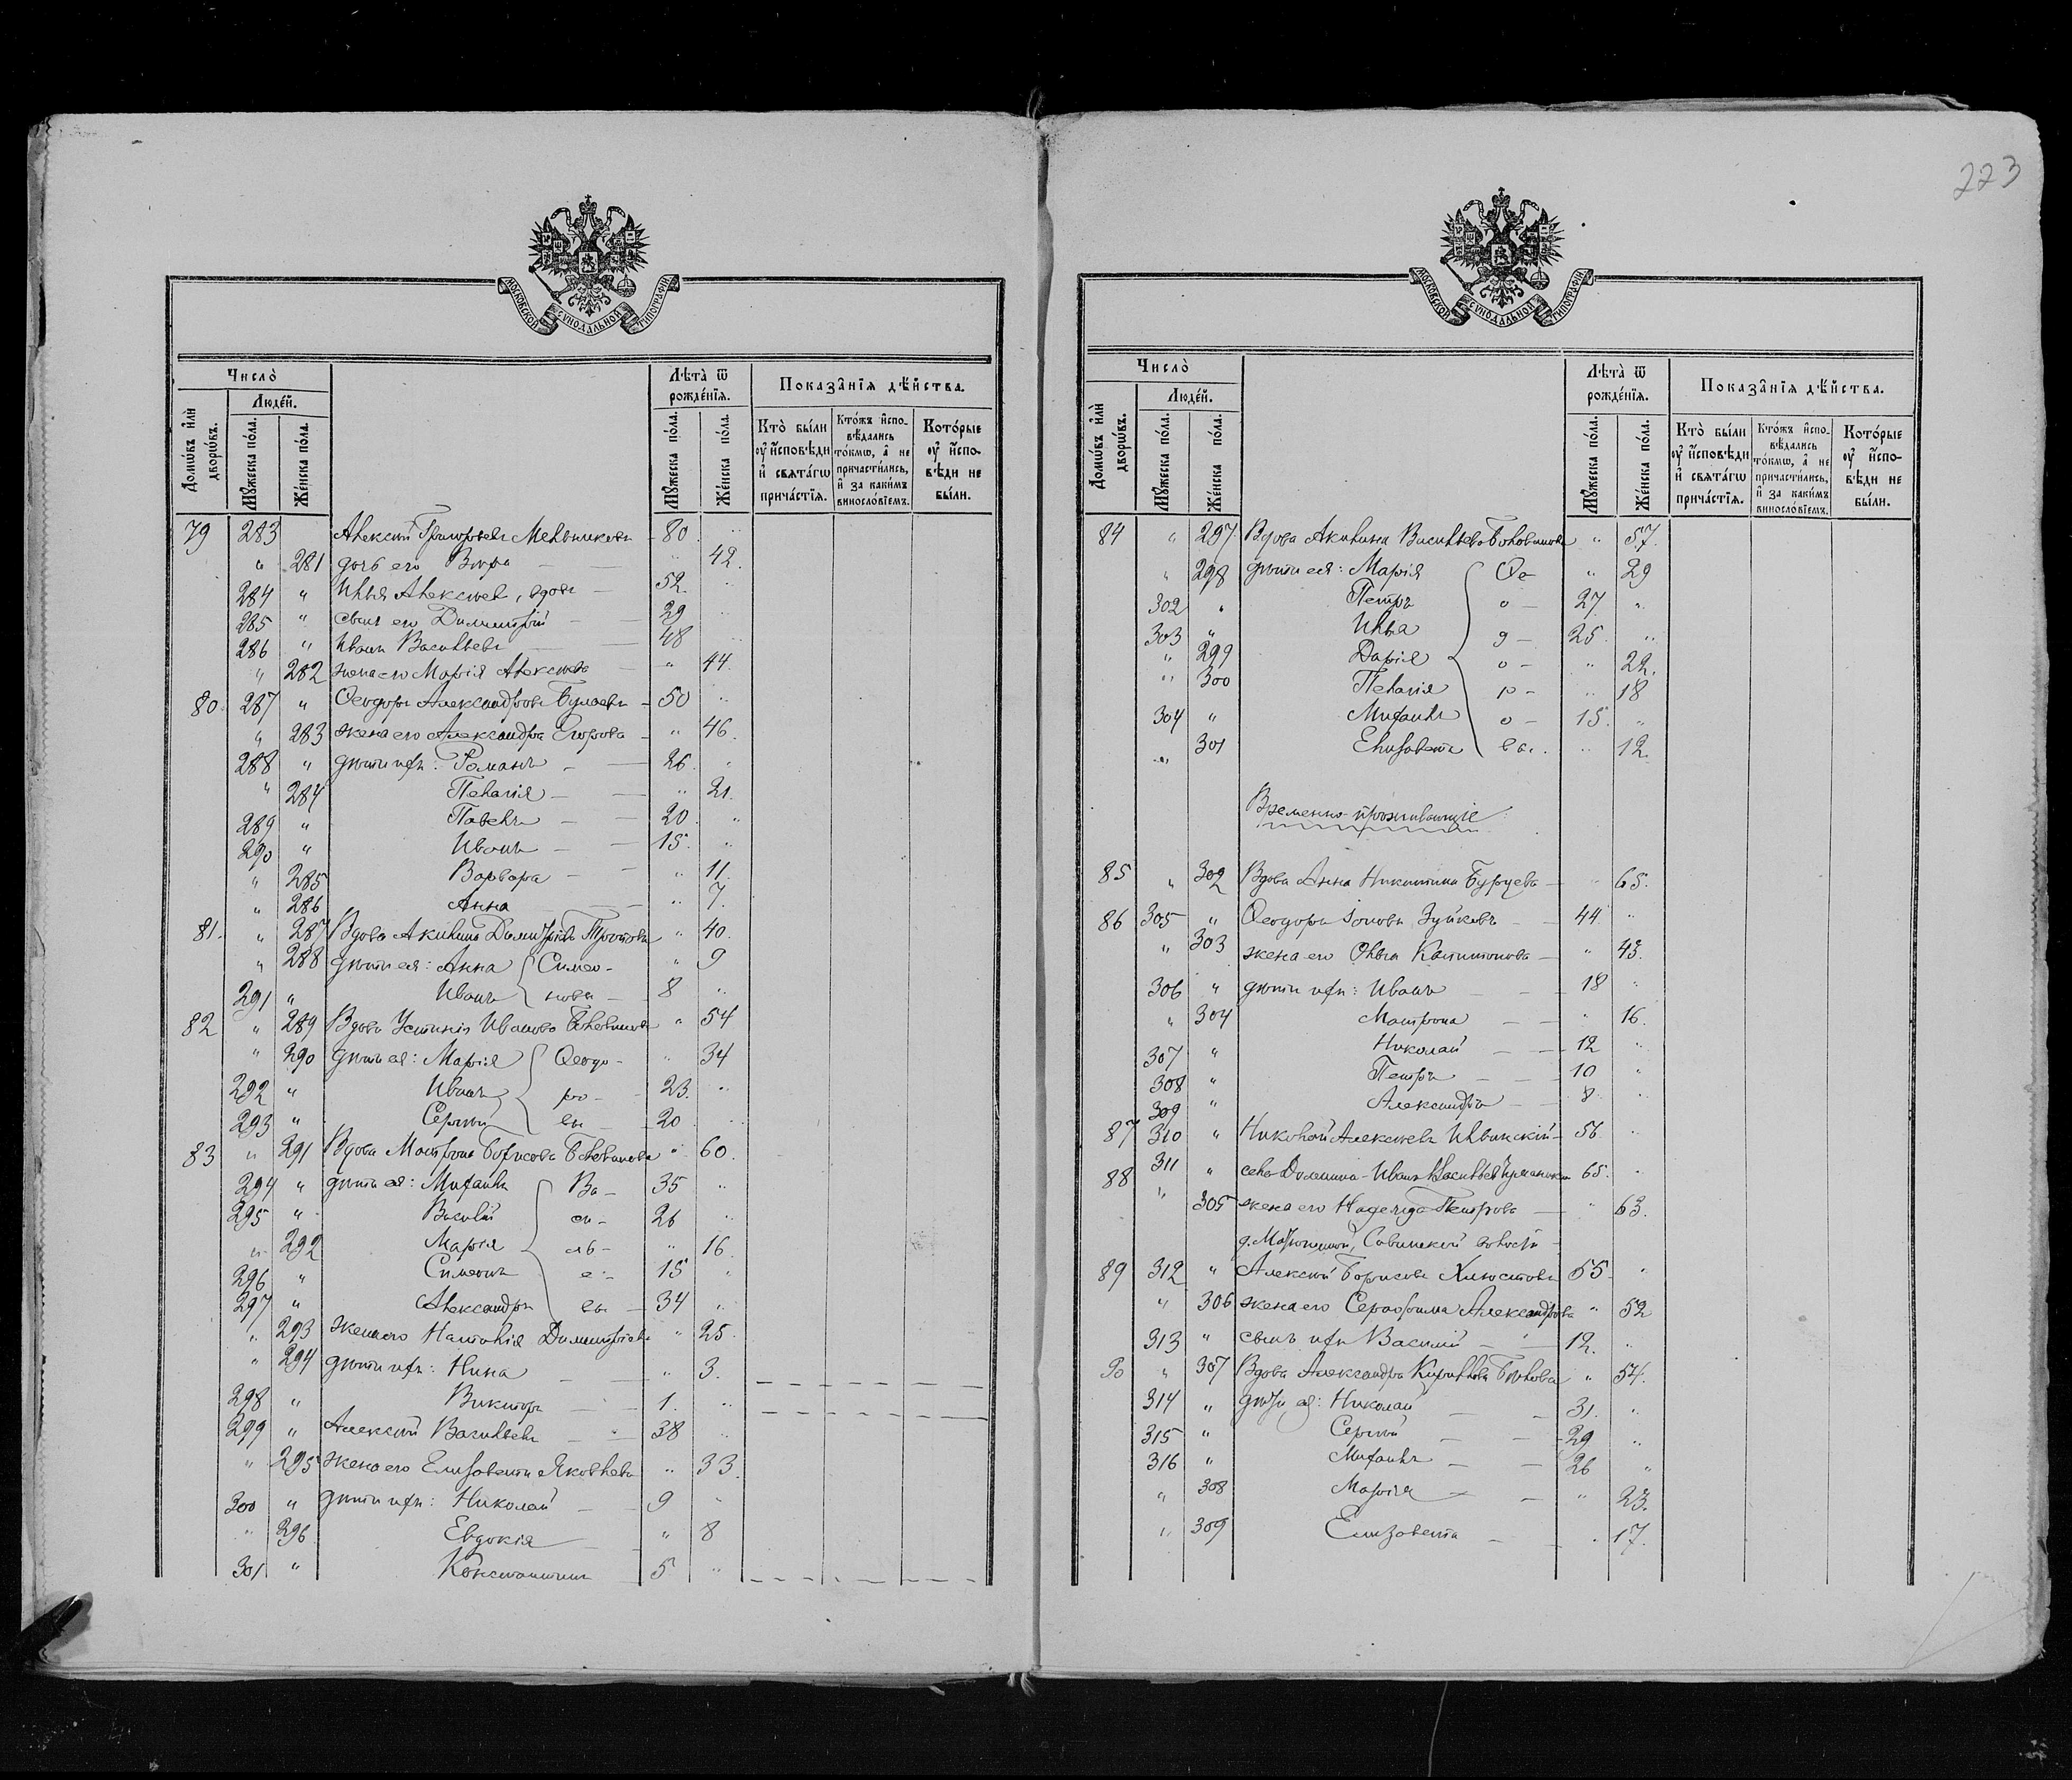 223
МОСКОВСКОЙ СѴНОДАЛЬНОЙ ТИПОГРАФІИ
Число̀
Лѣта̀ ѿ рождє́нїѧ.
Показа̂нїѧ дѣ́йства.
Людє́й.
Домѡ́въ и҆лѝ дворѡ́въ.
Мꙋ́жєска по́ла.
Же́нска по́ла.
Мꙋ́жєска по́ла.
Же́нска по́ла.
Кто̀ бы́ли ᲂу҆ и҆́сповѣди и҆ свѧта́гѡ прича́стїѧ.
Кто́жъ и҆сповѣ́дались то́кмѡ, а҆ не причасти́лись, и҆ за каки́мъ винословїемъ.
Кото́рые ᲂу҆ и҆́сповѣди не бы́ли.
79 283 Алексій Григорьевъ Мельниковъ 80 "
" 281 дочь его Вѣра " 42.
284 " Илья Алексѣевъ, вдовъ 52. "
285 " сынъ его Димитрій 29 "
286 " Иванъ Васильевъ 48 "
" 282 жена его Марія Алексѣева " 44.
80 287 " Ѳеодоръ Александровъ Булаевъ 50 "
" 283 жена его Александра Егорова " 46.
288 " дѣти ихъ: Романъ 26 "
" 284 Пелагія " 21.
289 " Павелъ 20 "
290 " Иванъ 15. "
" 285 Варвара " 11.
" 286 Анна " 7.
81. " 287 Вдова Акилина Димитріева " 40.
" 288 дѣти ея: Анна Симео- " 9
291 " Иванъ новы 8 "
82 " 289 Вдова Устинія Иванова " 54
" 290 дѣти ея: Марія Ѳеодо- " 34
292 " Иванъ ро- 23. "
293 " Сергій вы 20 "
83 " 291 Вдова Матрона Борисова " 60.
294 " дѣти ея: Михаилъ Ва- 35 "
295 " Василій си- 26 "
" 292 Марія ль- " 16.
296 " Симеонъ е- 15 "
297 " Александръ вы 34 "
" 293 жена его Наталія Димитріева " 25.
" 294 дѣти ихъ: Нина " 3.
298 " Викторъ 1. "
299 " Алексій Васильевъ 38 "
" 295 жена его Елизавета Яковлева " 33.
300 " дѣти ихъ: Николай 9 "
" 296 Евдокія " 8
301 " Константинъ 5 "
МОСКОВСКОЙ СѴНОДАЛЬНОЙ ТИПОГРАФІИ
Число̀
Лѣта̀ ѿ рождє́нїѧ.
Показа̂нїѧ дѣ́йства.
Людє́й.
Домѡ́въ и҆лѝ дворѡ́въ.
Мꙋ́жєска по́ла.
Же́нска по́ла.
Мꙋ́жєска по́ла.
Же́нска по́ла.
Кто̀ бы́ли ᲂу҆ и҆́сповѣди и҆ свѧта́гѡ прича́стїѧ.
Кто́жъ и҆сповѣ́дались то́кмѡ, а҆ не причасти́лись, и҆ за каки́мъ винословїемъ.
Кото́рые ᲂу҆ и҆́сповѣди не бы́ли.
84 " 297 Вдова Акилина Васильева " 57.
" 298 дѣти ея: Марія Ѳе- " 29
302 " Петръ о- 27 "
303 " Илья д- 25. "
" 299 Дарія о- " 22.
" 300 Пелагія р- " 18
304 " Михаилъ о- 15. "
" 301 Елизавета вы. " 12.
Временно-проживающіе
85 " 302 Вдова Анна Никитина Бурцева " 65.
86 305 " Ѳеодоръ Іоновъ Зуйковъ 44 "
" 303 жена его Ольга Капитонова " 43.
306 " дѣти ихъ: Иванъ 18 "
" 304 Матрона " 16.
307 " Николай 12 "
308 " Петръ 10 "
309 " Александръ 8 "
87 310 " Николай Алексѣевъ Ильинскій 56 "
88 311 " Иванъ Васильевъ 65. "
" 305 жена его Надежда Петрова " 63.
д. волости
89 312 " Алексій Борисовъ Хлюстовъ 55 "
" 306 жена его Серафима Александрова " 52
313 " сынъ ихъ Василій 12. "
90 " 307 Вдова Александра Кириллова " 54.
314 " дѣти ея: Николай 31. "
315 " Сергій 29 "
316 " Михаилъ 26 "
" 308 Марія " 23.
" 309 Елизавета " 17.